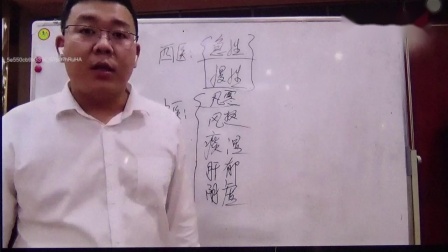 西医：{急性
慢性
医：{风寒
风热
痰湿
肝郁
阴虚